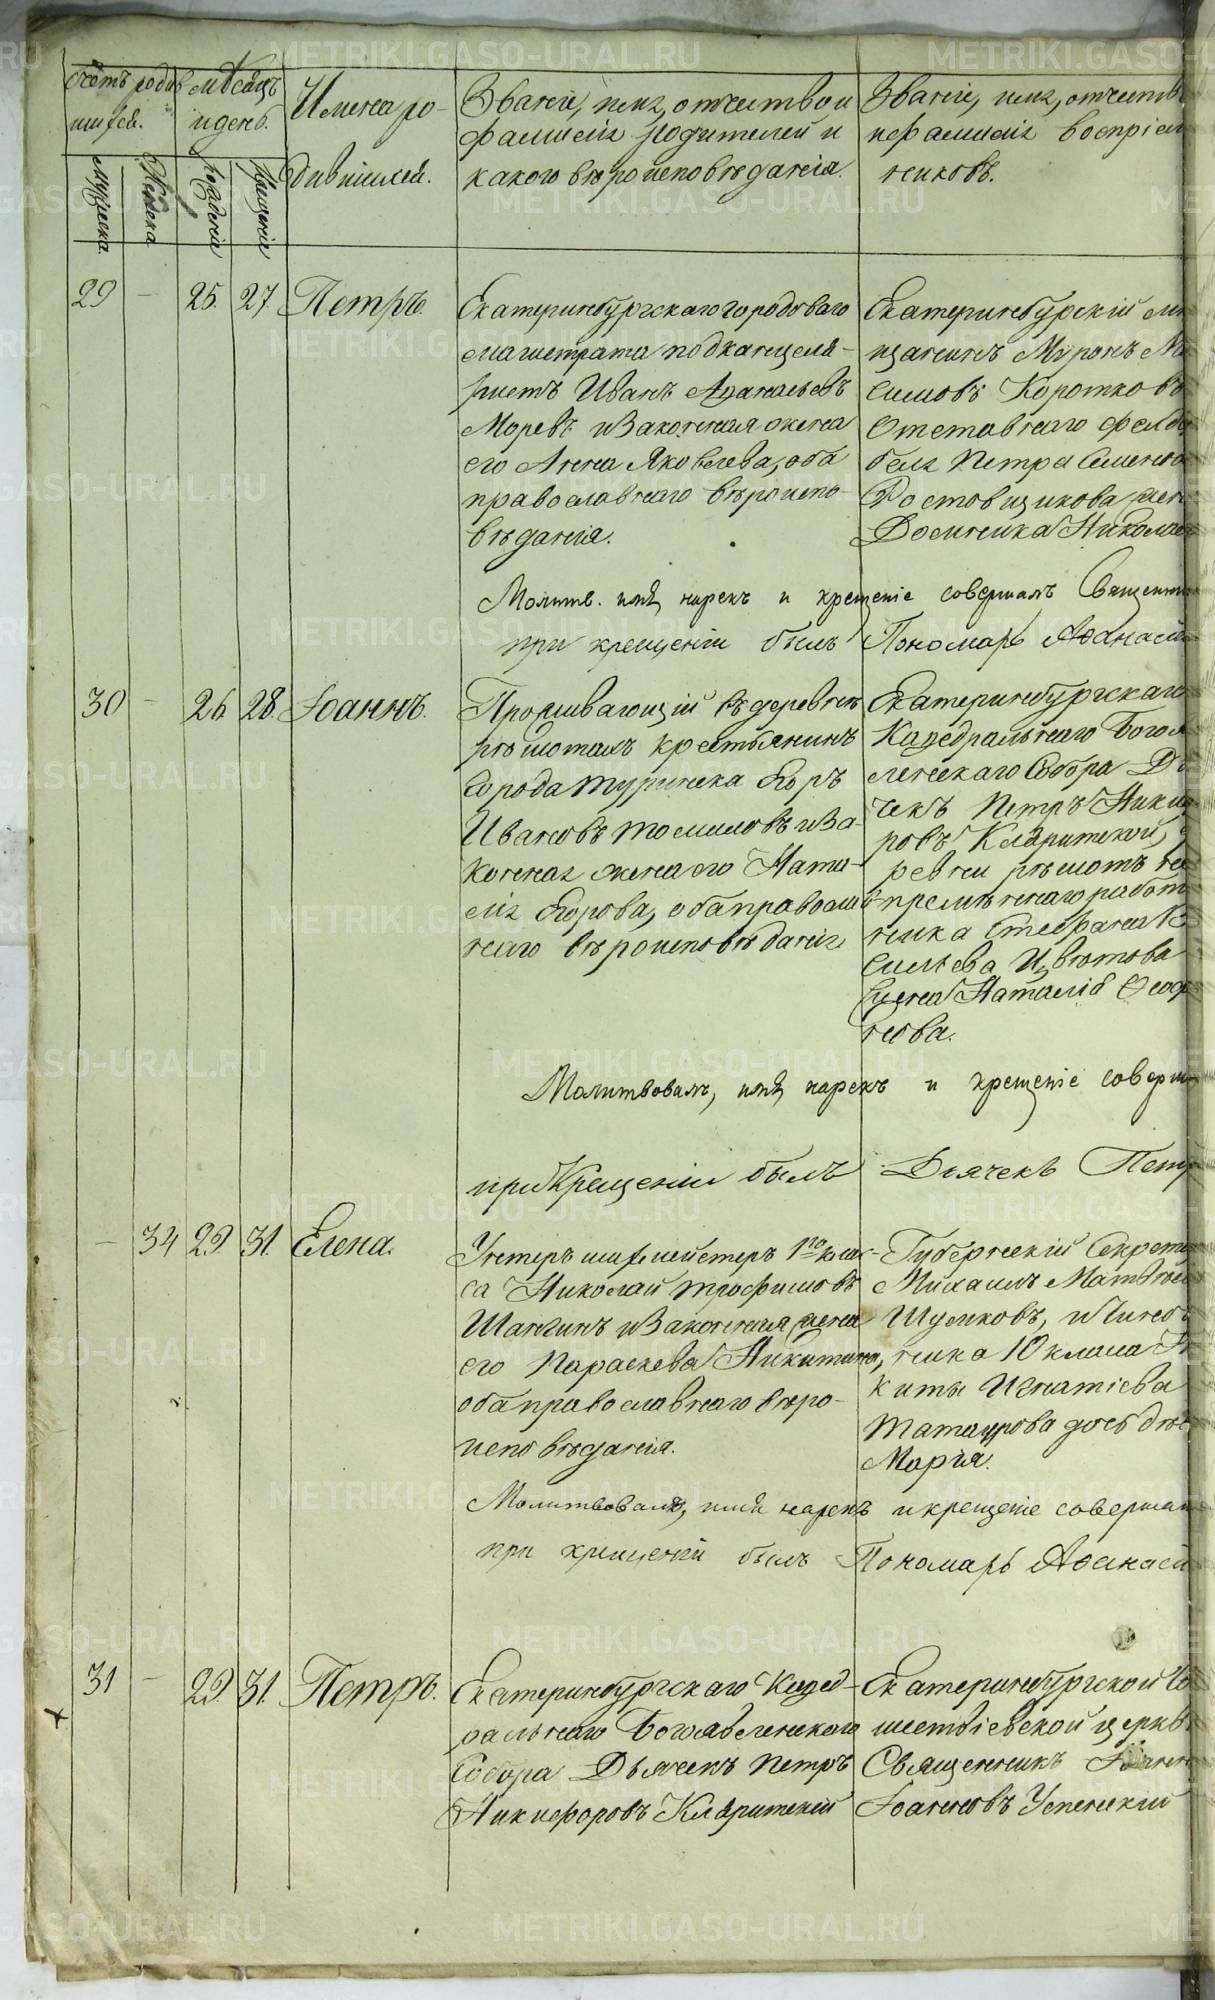 Счетъ родив
шихся.
Мужеска.
Женска
Мѣсяцъ
и день.
Рожденія
Крещенія
Имена ро-
дившихся.
Званіе, имя, отчество и
фамилія родителей и
какого вѣроисповѣданія.
Званіе, имя, отчеств
и фамилія воспріем
никовъ.
29 — 25. 27. Петръ.
Екатеринбургскаго городоваго
магистрата подканцеля-
ристъ Иванъ Афанасьевъ
Моревъ и законная жена
его Анна Яковлева, оба
православнаго вѣроиспо-
вѣданія.
Екатеринбургскій мѣ
щанинъ Миронъ Ма
симовъ Коротковъ
Отставнаго фельд
беля Петра Семенов
Ростовщикова жен
Домника Николае
Молитв. имя нарекъ и крещеніе совершалъ Священни
при крещеніи былъ Пономарь Афанасі
30 — 26. 28. Іоаннъ.
Проживающій въ деревнѣ
рѣшотахъ крестьянинъ
города туринска Егоръ
Ивановъ томиловъ и за-
конная жена его Ната-
лія Егорова, оба православ
наго вѣроисповѣданія
Екатеринбургскаго
Кафедральнаго Богоя
вленскаго Собора Дь
чекъ Петръ Никиф
ровъ Кляритской,
ревни рѣшотъ не
премѣннаго работ
ника Стефана
сильева Цвѣтова
жена Наталія
нова.
Молитвовалъ, имя нарекъ и крещеніе соверш
при Крещеніи былъ Дьячекъ Петр
— 34 29. 31. Елена.
Унтеръ шихмейстеръ 1го клас-
са Николай трофимовъ
Шангинъ и законная жена
его Параскева Никитина,
оба православнаго вѣро-
исповѣданія.
Губернскій Секрета
Михаилъ Матвѣев
Шумковъ, и Чинов
ника 10 класа Ни
киты Игнатіева
Татаурова дочь дѣв
Марія.
Молитвовалъ, имя нарекъ и крещеніе совершал
при крещеніи былъ Пономарь Афанасі
31 — 29. 31. Петръ.
Екатеринбургскаго Кафед-
ральнаго Богоявленскаго
Собора Дьячекъ Петръ
Никифоровъ Кляритскій
Екатеринбургской
шествіевской церкв
Священникъ Іоанн
Іоанновъ Успенскій
METRIKI.GASO-URAL.RU